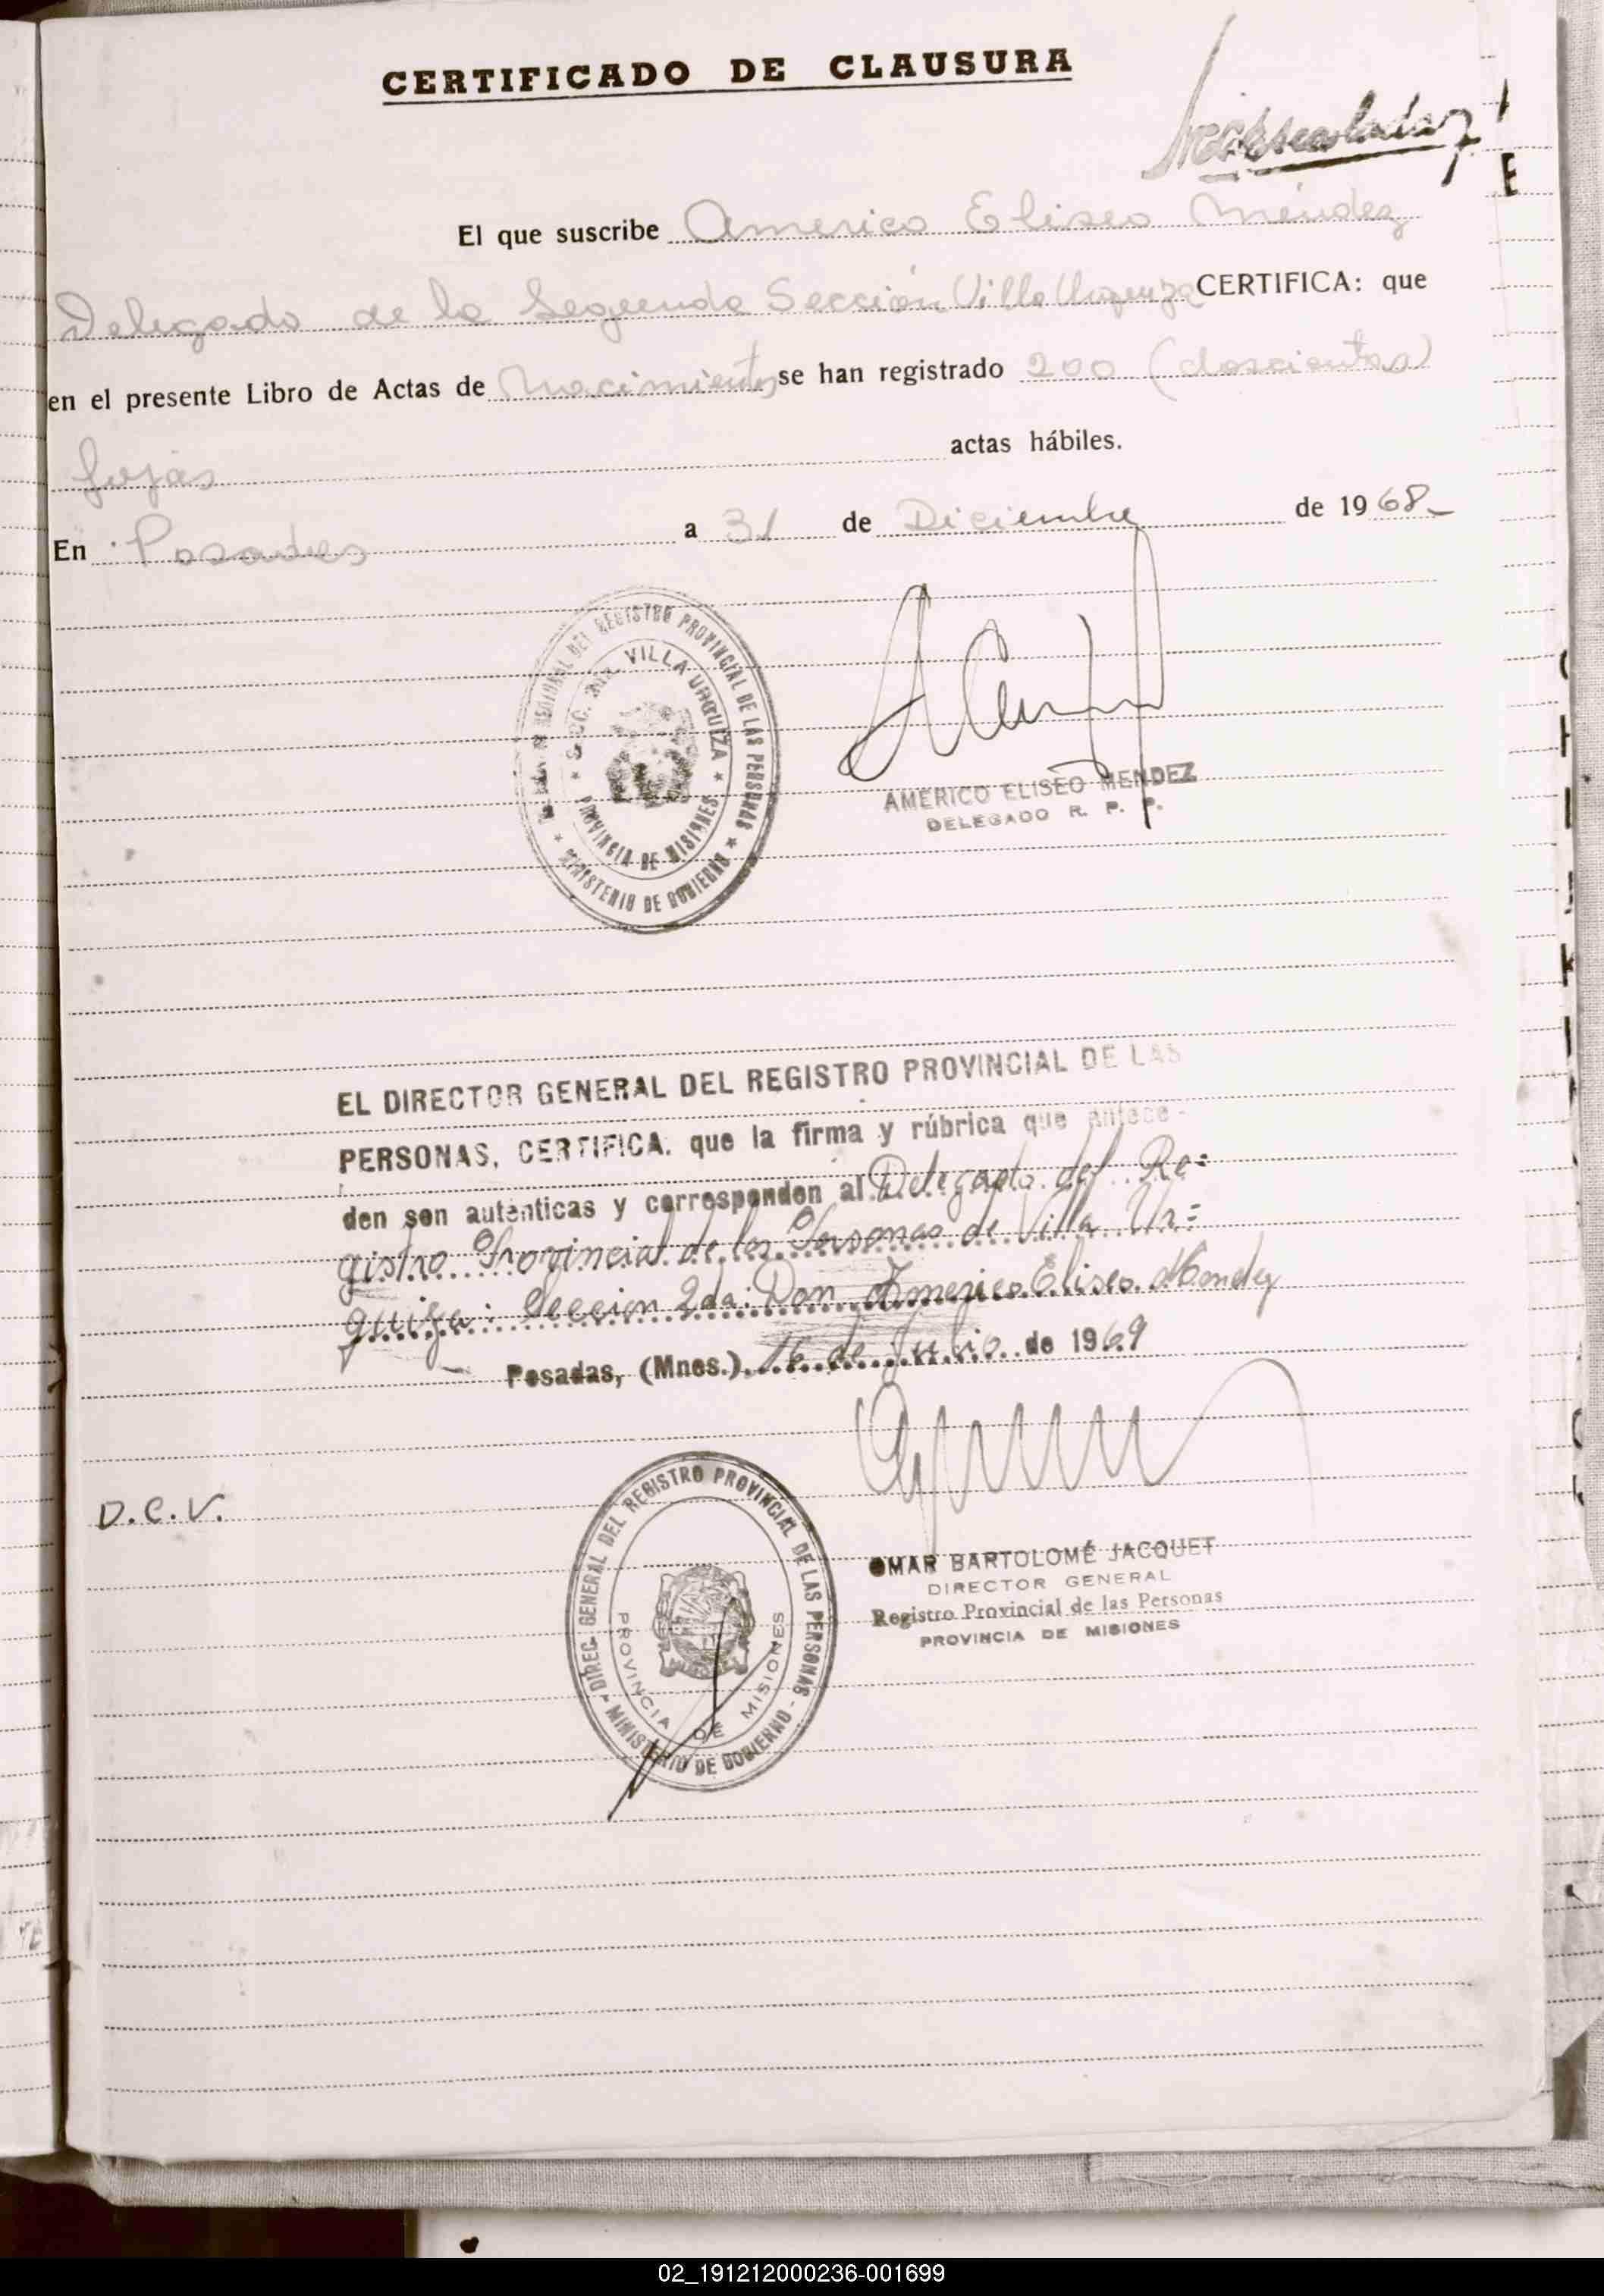 CERTIFICADO DE CLAUSURA
El que suscribe Americo Eliseo Méndez
Delegado de la Segunda Sección Villa Urquiza CERTIFICA: que
en el presente Libro de Actas de Nacimientos se han registrado 200 (doscientas)
fojas actas hábiles.
En Posadas a 31 de Diciembre de 1968_
REGIONAL DEL REGISTRO PROVINCIAL DE LAS PERSONAS
VILLA URQUIZA
PROVINCIA DE MISIONES
MINISTERIO DE GOBIERNO
AMERICO ELISEO MENDEZ
DELEGADO R. P. P.
EL DIRECTOR GENERAL DEL REGISTRO PROVINCIAL DE LAS
PERSONAS, CERTIFICA. que la firma y rúbrica que antece-
den son autenticas y corresponden al Delegado del Re=
gistro Provincial de las Personas de Villa Ur=
quiza: Seccion 2da: Don Americo Eliseo Mendez
Posadas, (Mnes.) 16 de Julio de 1969
D.C.V.
DIREC. GENERAL DEL REGISTRO PROVINCIAL DE LAS PERSONAS - MINISTERIO DE GOBIERNO -
PROVINCIA DE MISIONES
OMAR BARTOLOMÉ JACQUET
DIRECTOR GENERAL
Registro Provincial de las Personas
PROVINCIA DE MISIONES
02_191212000236-001699